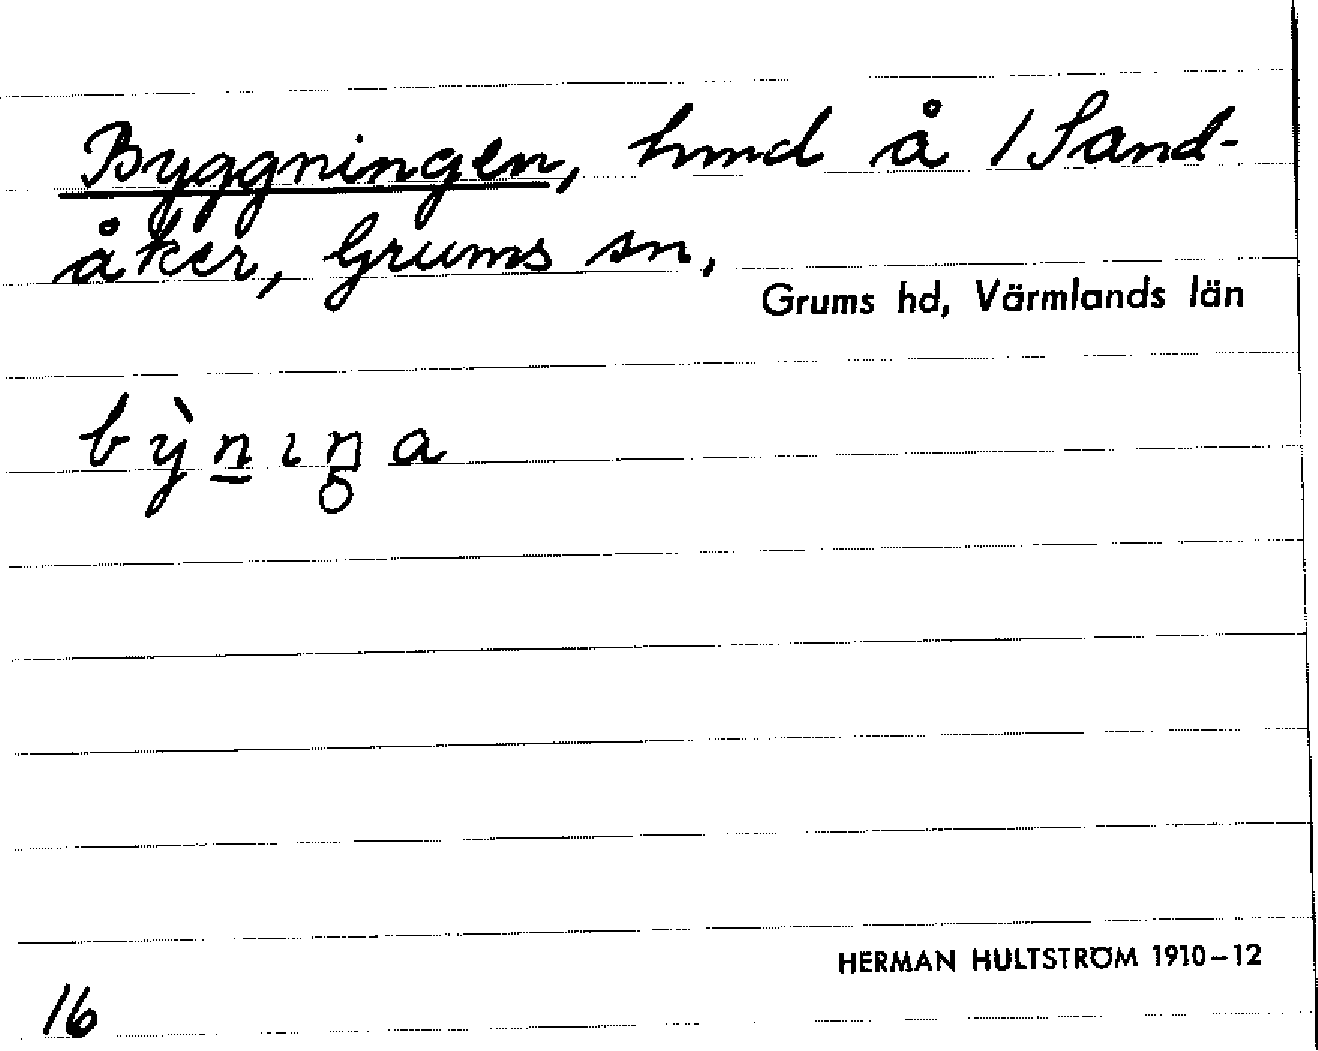 Byggningen, hmd å 1 Sand-
åker, Grums sn,
Grums hd, Värmlands län
bỳn̲ɩŋ̥a
HERMAN HULTSTRÖM 1910–12
16